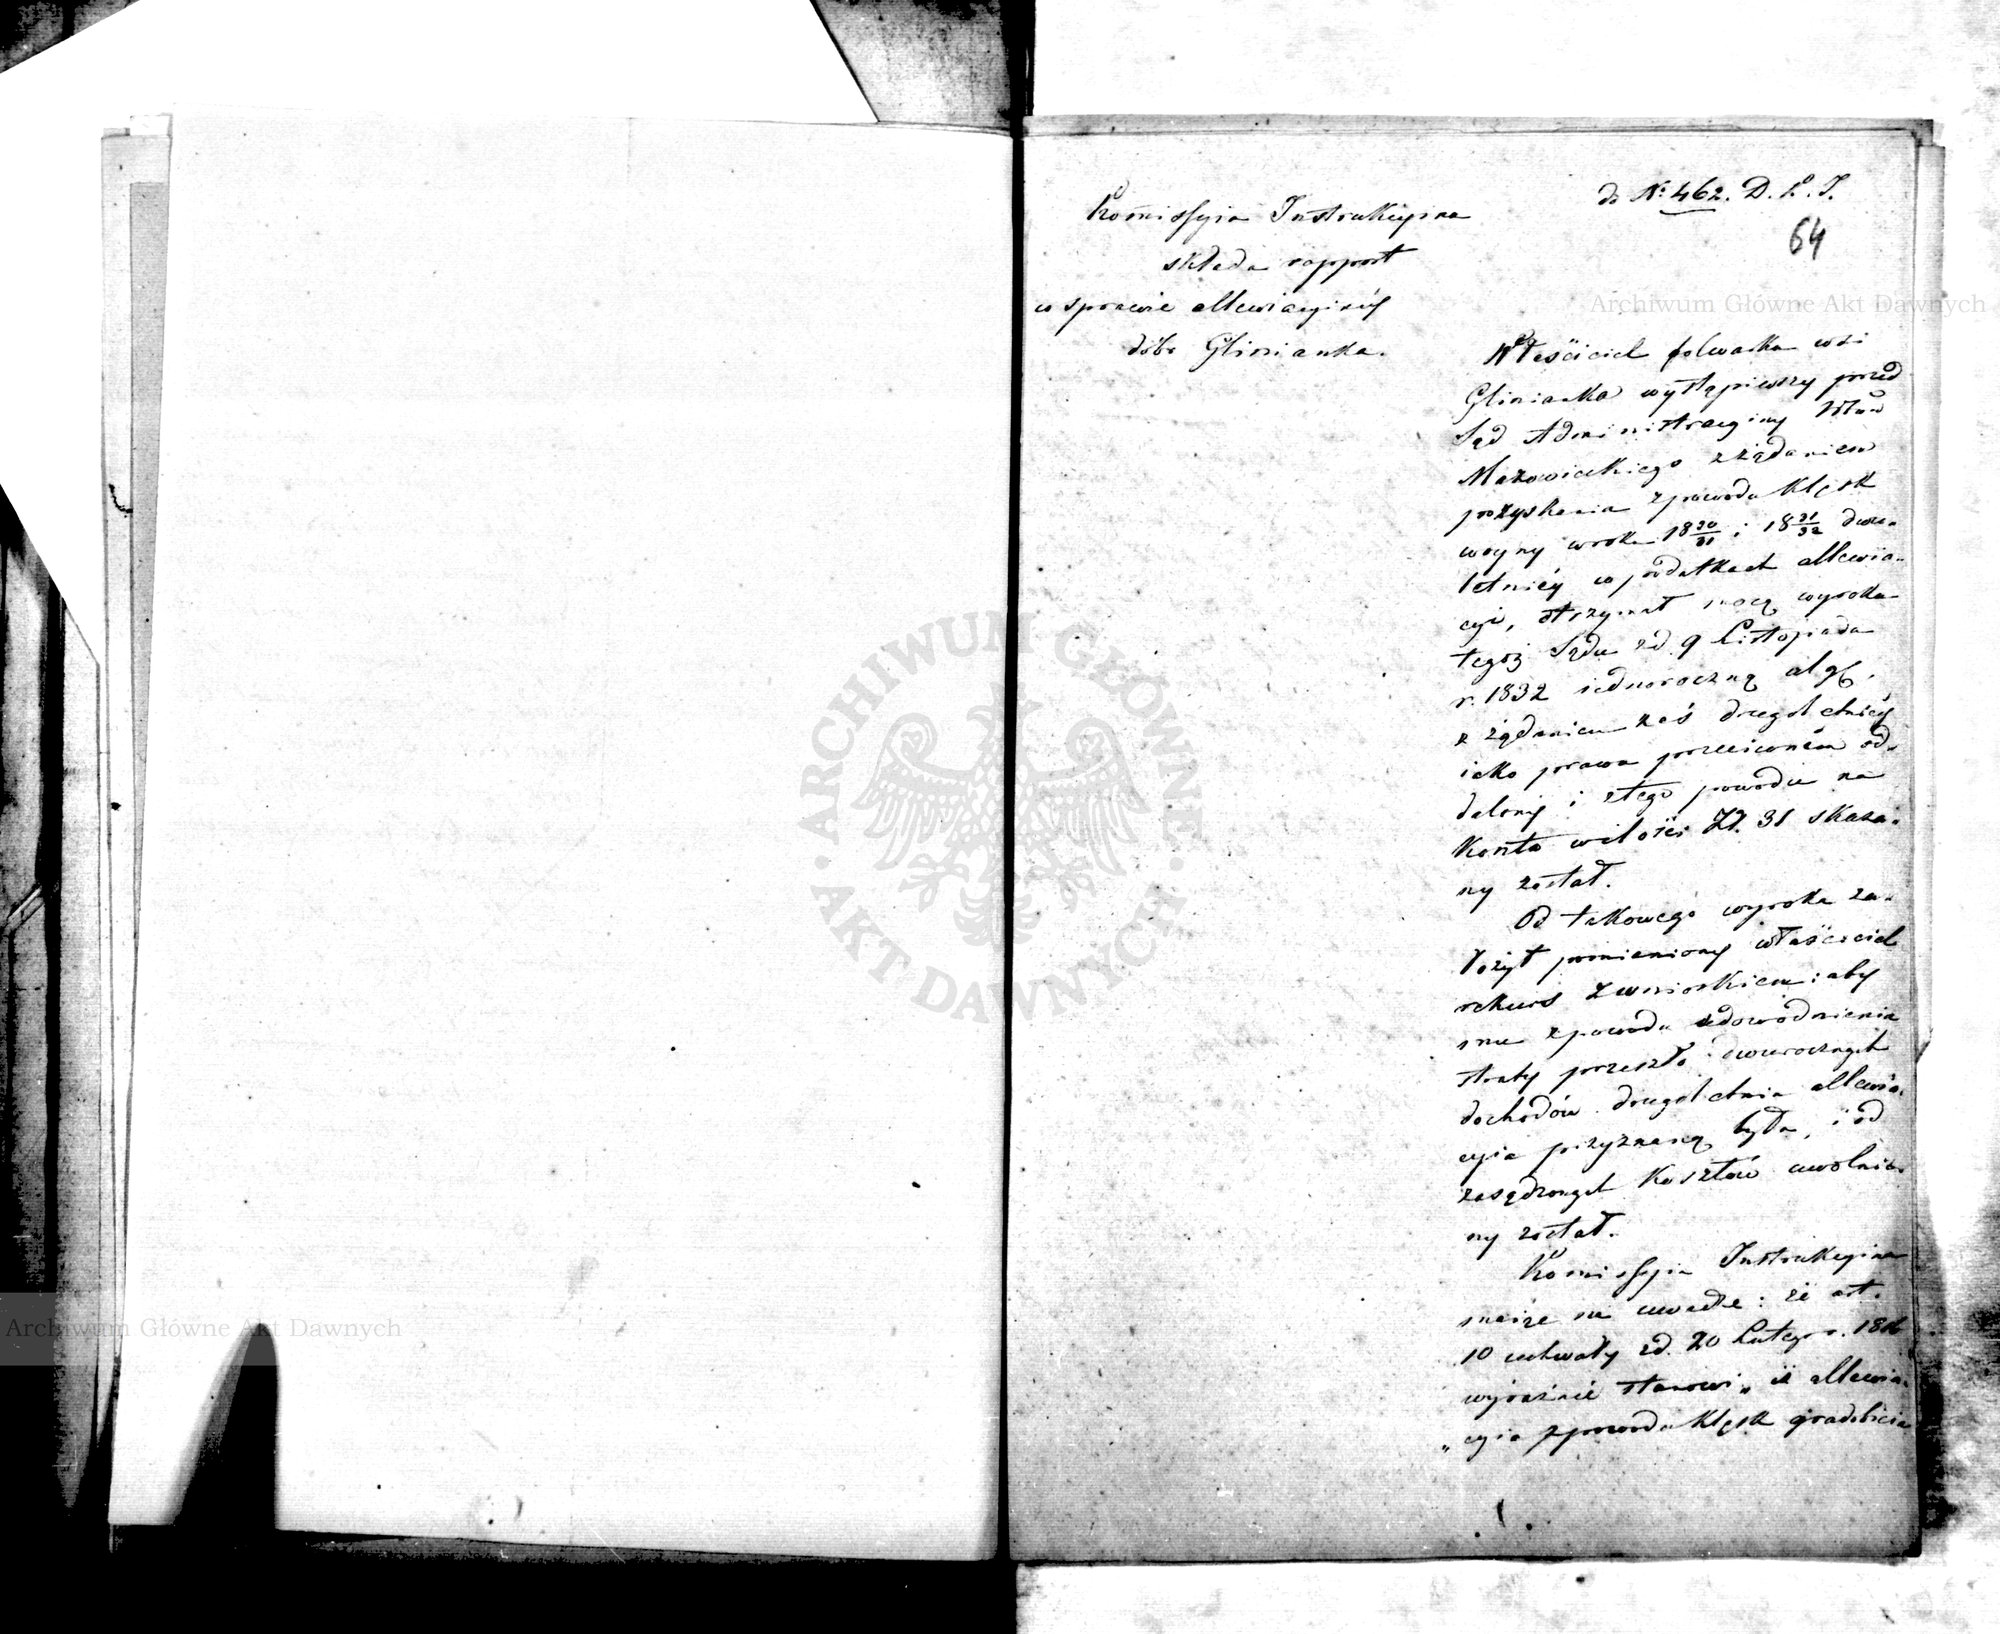 do No 462. D. P. J.
64
Komissyia Instrukcyina
składa rapport
w sprawie allewiacyinéy
dóbr Glinianka.
Właściciel folwarku wsi
Glinianka wystąpiwszy przed
Sąd Administracyiny Wdztw
Mazowieckiego z żądaniem
pozyskania z powodu klęsk
woyny w roku 18 30/31 i 18 31/32 dwu-
letniéy w podatkach allewia-
cyi, otrzymał mocą wyroku
tegoż Sądu z d. 9 Listopada
r. 1832 iednoroczną
z żądaniem zaś drugoletniéy
iako prawu przeciwném od-
dalony i z tego powodu na
koszta w ilości Zł. 31 skaza-
ny został.
Od takowego wyroku za-
łożył pomieniony właściciel
rekurs z wnioskiem: aby
mu z powodu udowodnienia
straty przeszło dwurocznych
dochodów drugoletnia allewia-
cyia przyznaną była, i od
zasądzonych kosztów uwolnio-
ny został.
Komissyia Instrukcyina
maiąc na uwadze: że art.
10 uchwały z d. 20 Lutego r.
wyraźnie stanowi „iż allewia-
„cyia z powodu klęsk gradobicia
Archiwum Główne Akt Dawnych
ARCHIWUM GŁÓWNE
AKT DAWNYCH
Archiwum Główne Akt Dawnych